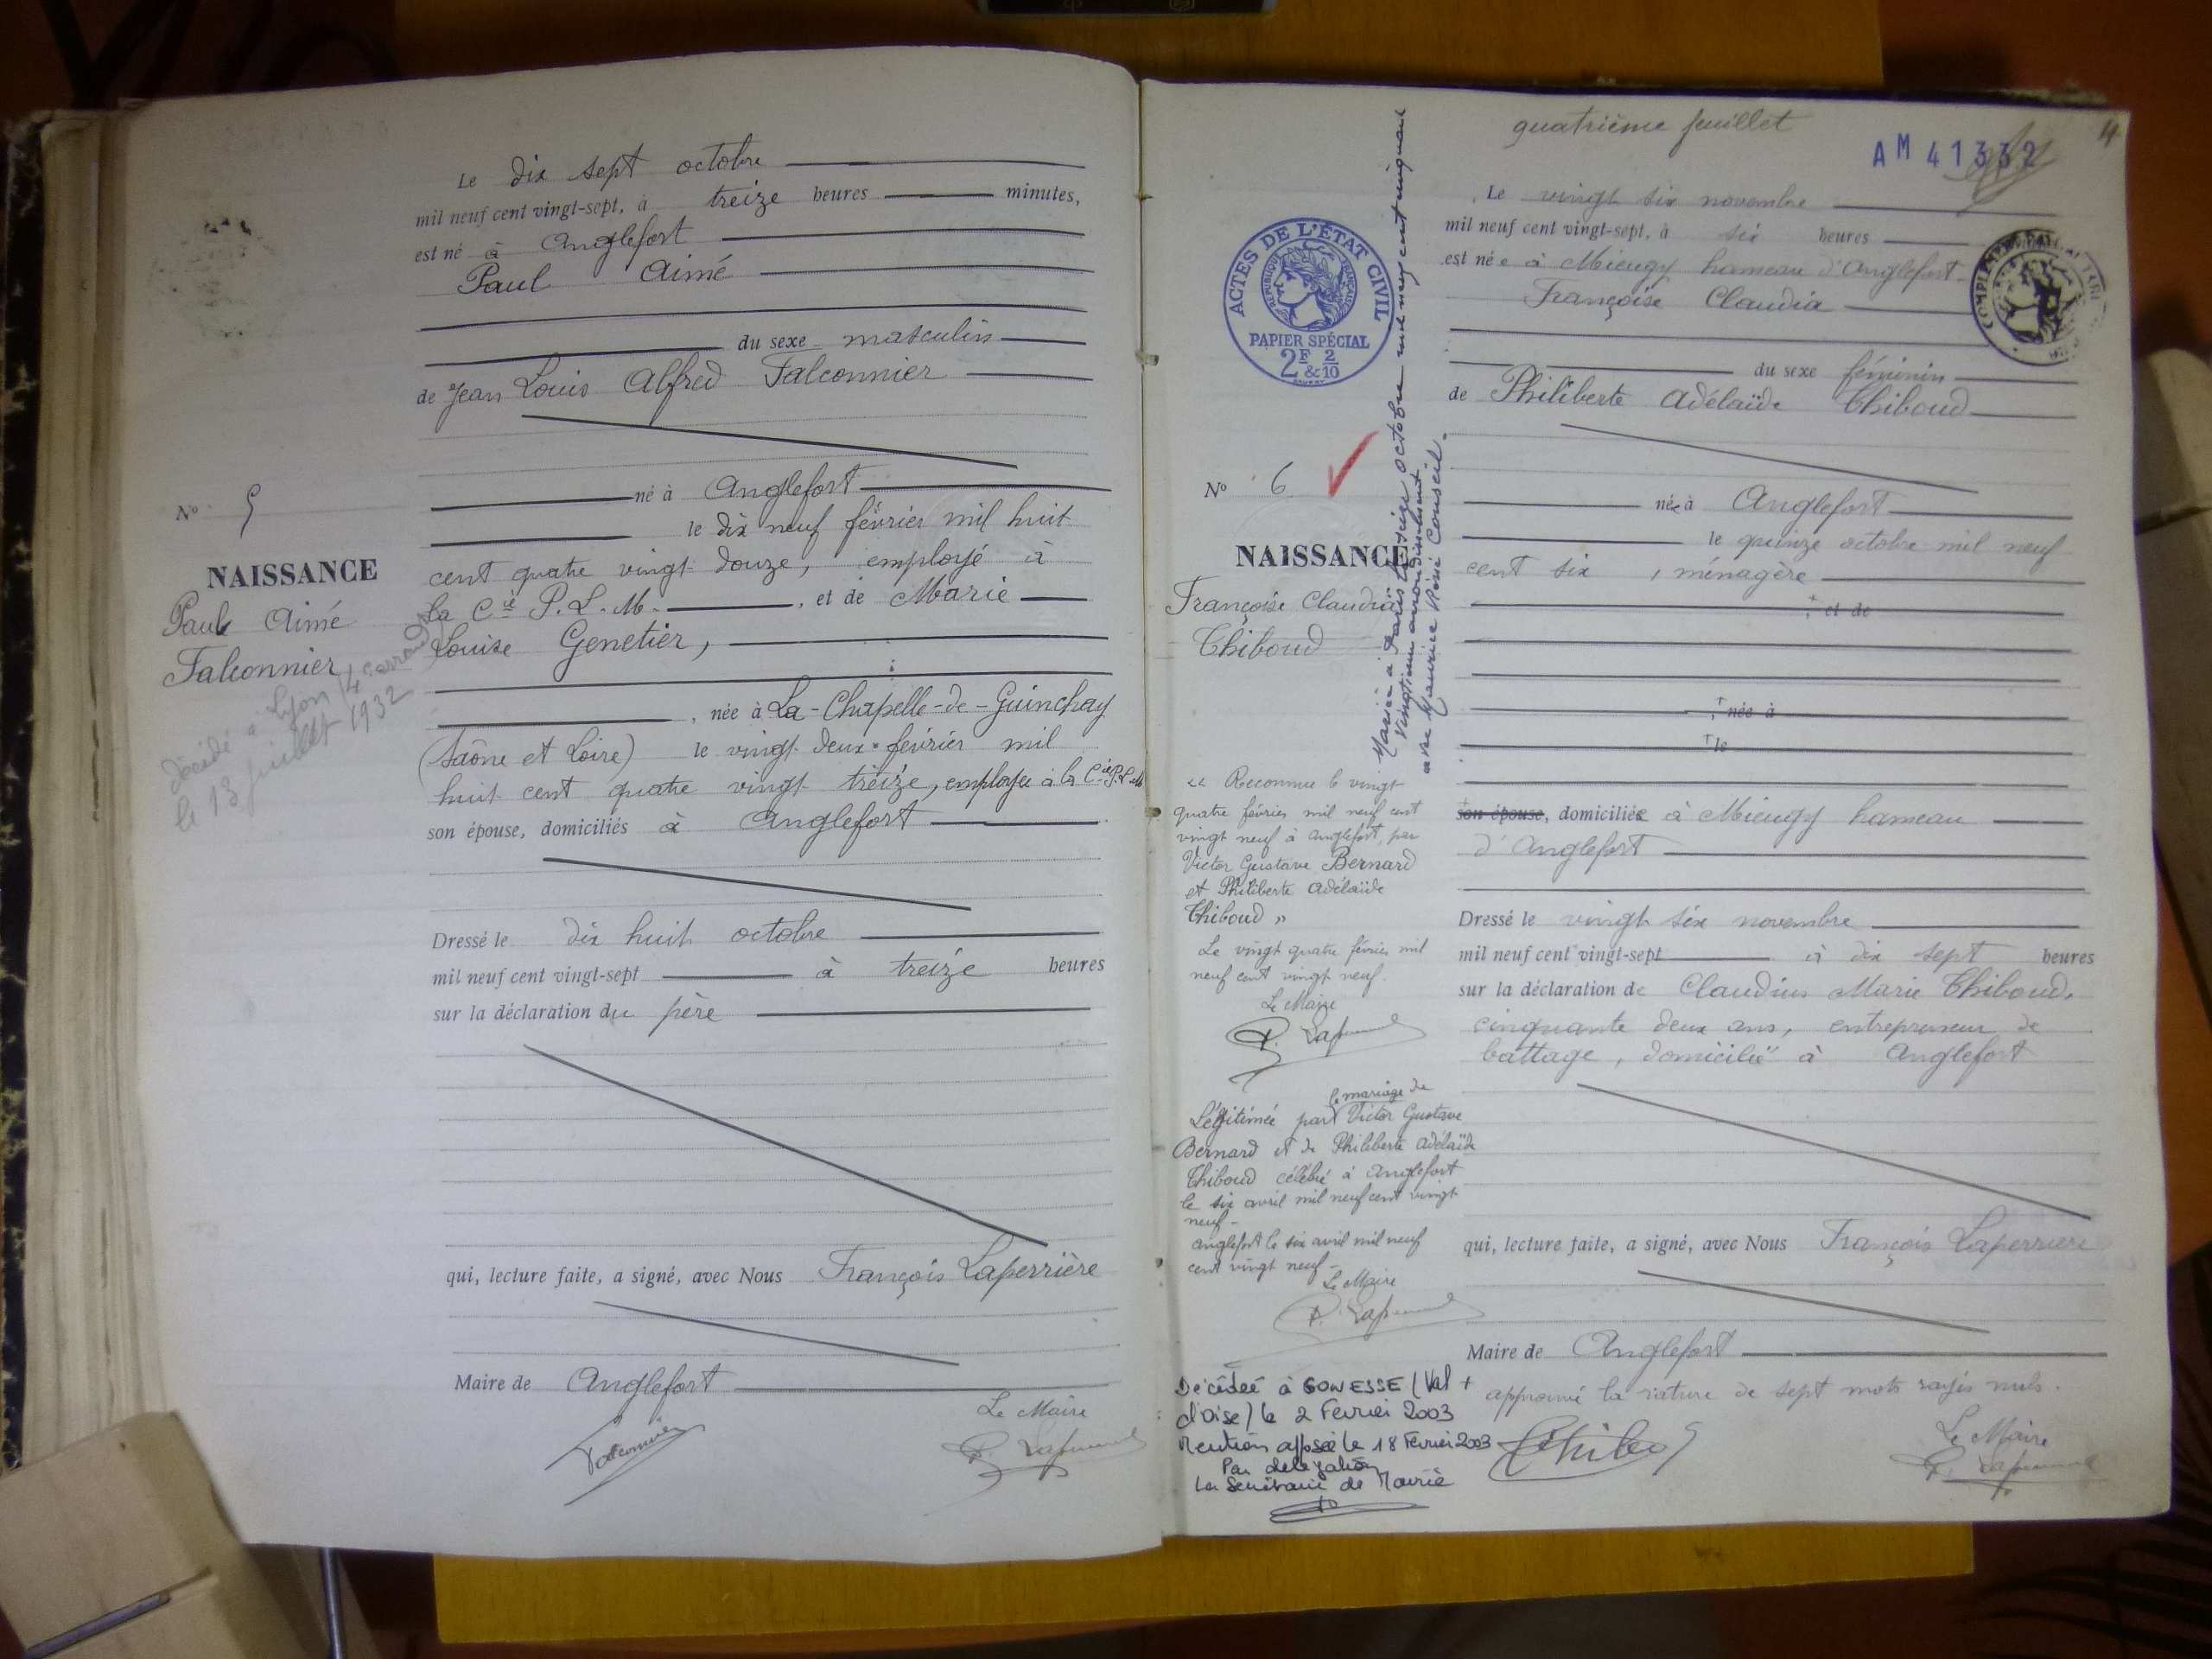 Le dix sept octobre
mil neuf cent vingt-sept, à treize heures minutes,
est né à Anglefort
Paul Aimé
du sexe masculin
de Jean Louis Alfred Falconnier
né à Anglefort
le dix neuf février mil huit
cent quatre vingt douze, employé à
la Cie P.L.M. , et de Marie
Louise Genetier,
, née à La-Chapelle-de-Guinchay
(Saône et Loire) le vingt deux février mil
huit cent quatre vingt treize, employée à la Cie P.L.M
son épouse, domiciliés à Anglefort
Dressé le dix huit octobre
mil neuf cent vingt-sept à treize heures
sur la déclaration du père
qui, lecture faite, a signé, avec Nous François Laperrière
Maire de Anglefort
Le Maire
Falconnier
No 5
NAISSANCE
Paul Aimé
Falconnier
décédé à Lyon 4e arrond
le 13 juillet 1932
quatrième feuillet
4
AM 41332
ACTES DE L'ÉTAT CIVIL
RÉPUBLIQUE FRANÇAISE
PAPIER SPÉCIAL
2F 2
& 10
No 6
NAISSANCE
Françoise Claudia
Thiboud
Mariée à Paris le seize octobre mil neuf cent cinquante
vingtième arrondissement
avec Maurice René Conseil.
« Reconnue le vingt
quatre février mil neuf cent
vingt neuf à Anglefort, par
Victor Gustave Bernard
et Philiberte Adélaïde
Thiboud »
Le vingt quatre février mil
neuf cent vingt neuf.
Le Maire
le mariage de
Légitimée par Victor Gustave
Bernard et de Philiberte Adélaïde
Thiboud célébré à Anglefort
le six avril mil neuf cent vingt
neuf -
Anglefort le six avril mil neuf
cent vingt neuf -
Le Maire
Décédée à GONESSE (Val
d'Oise) le 2 Février 2003
Mention apposée le 18 Février 2003
Par délégation
La Secrétaire de Mairie
Le vingt six novembre
mil neuf cent vingt-sept, à six heures
est née à Mieugy hameau d'Anglefort
Françoise Claudia
du sexe féminin
de Philiberte Adélaïde Thiboud
née à Anglefort
le quinze octobre mil neuf
cent six , ménagère
+ , et de
+ , née à
+ le
+ son épouse, domiciliée à Mieugy hameau
d'Anglefort
Dressé le vingt six novembre
mil neuf cent vingt-sept à dix sept heures
sur la déclaration de Claudius Marie Thiboud,
cinquante deux ans, entrepreneur de
battage, domicilié à Anglefort
qui, lecture faite, a signé, avec Nous François Laperrière
Maire de Anglefort
+ approuvé la rature de sept mots rayés nuls.
Le Maire